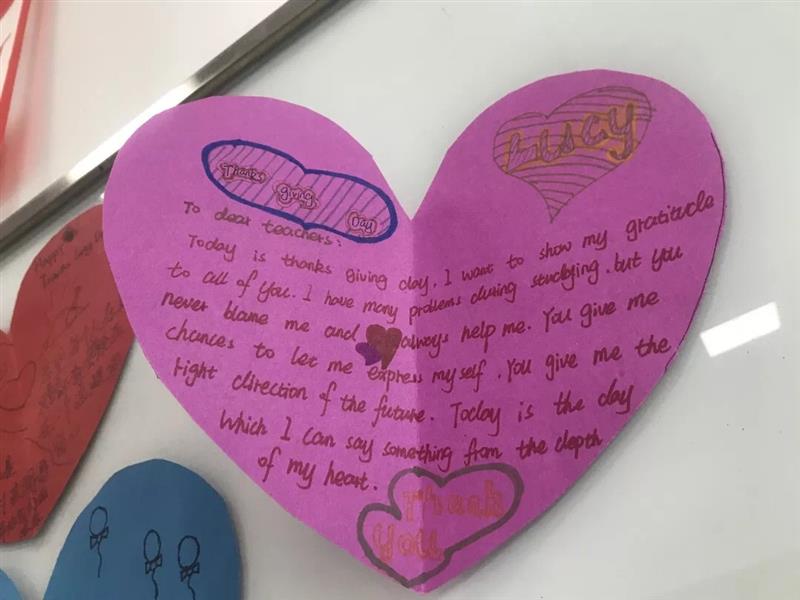 Thanks
giving
Day
To dear teachers:
Today is thanks giving day. I want to show my gratitude
to all of you. I have many problems during studying. but you
never blame me and always help me. You give me
chances to let me express myself. You give me the
right direction of the future. Today is the day
which I can say something from the depth
of my heart.
Thank
You
Happy